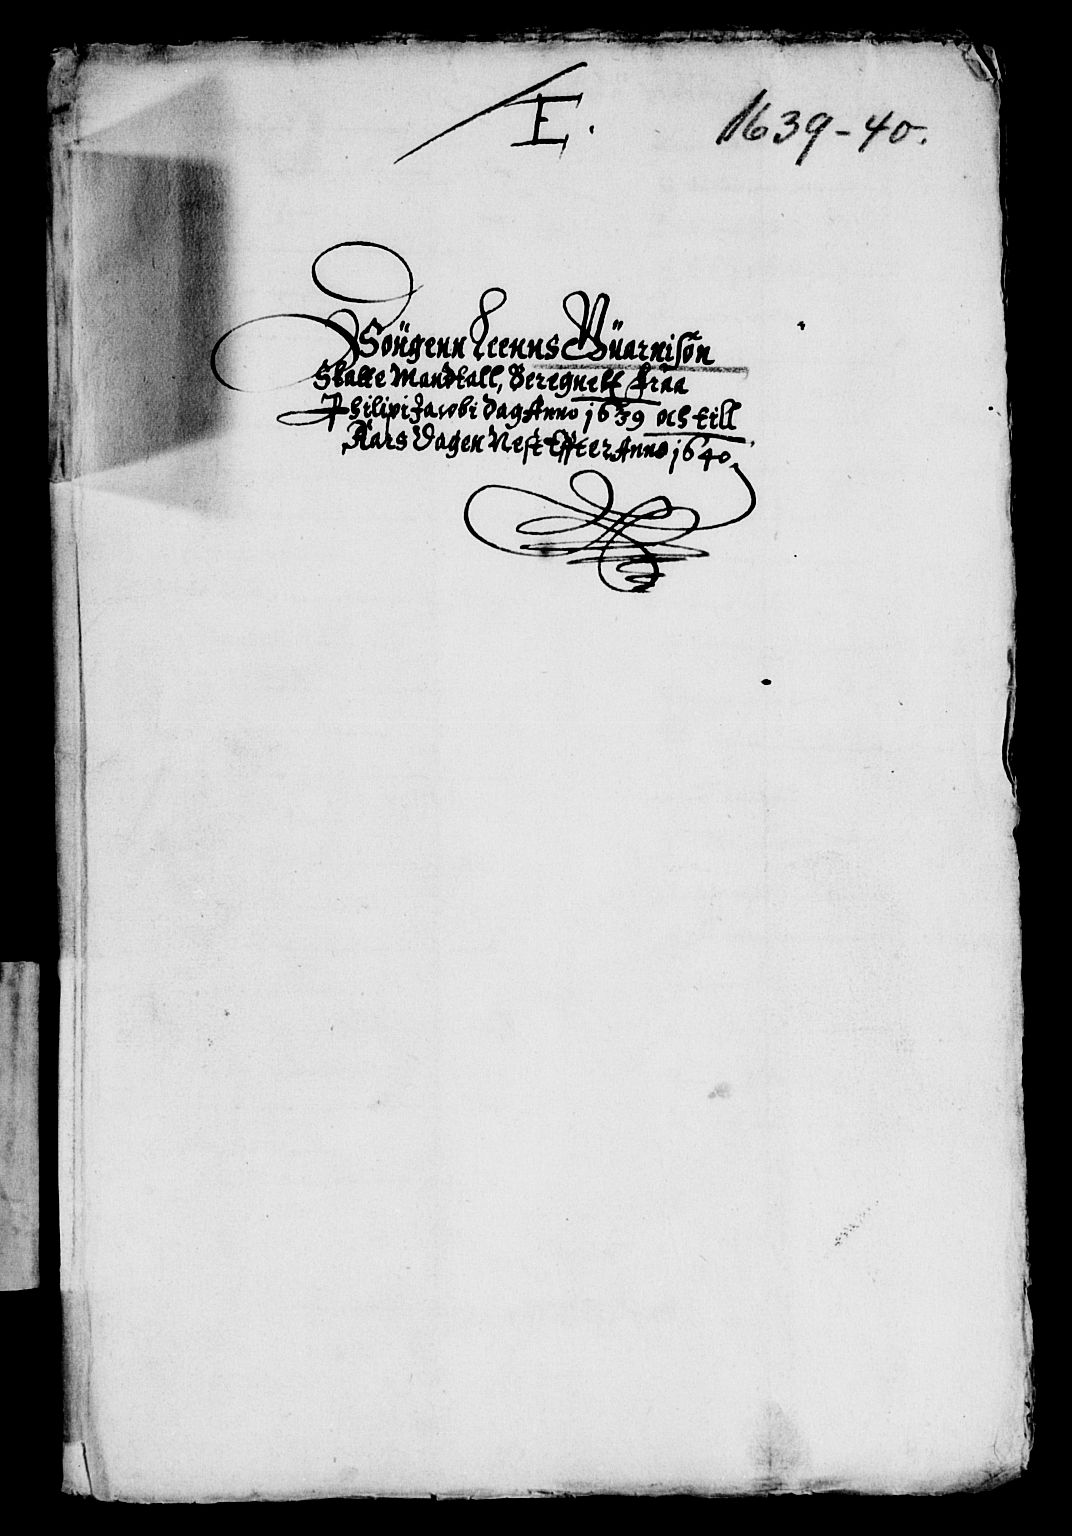 E.
1639-40.
Sougenn Leenns Guarnison
Skatte Mandtall, Beregnett fraa
Philipi Jacobi dag Anno 1639 och till
Aars Dagen Nest Effter Anno 1640.